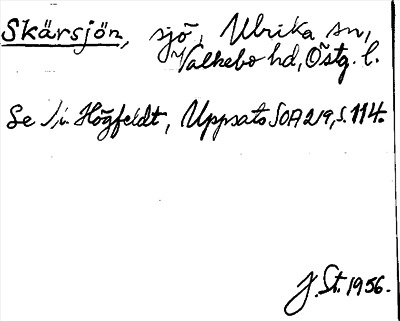 Skärsjön, sjö, Ulrika sn,
Valkebo hd, Östg. l.
Se Högfeldt, Uppsats SOA 219, s. 114.
J. St. 1956.